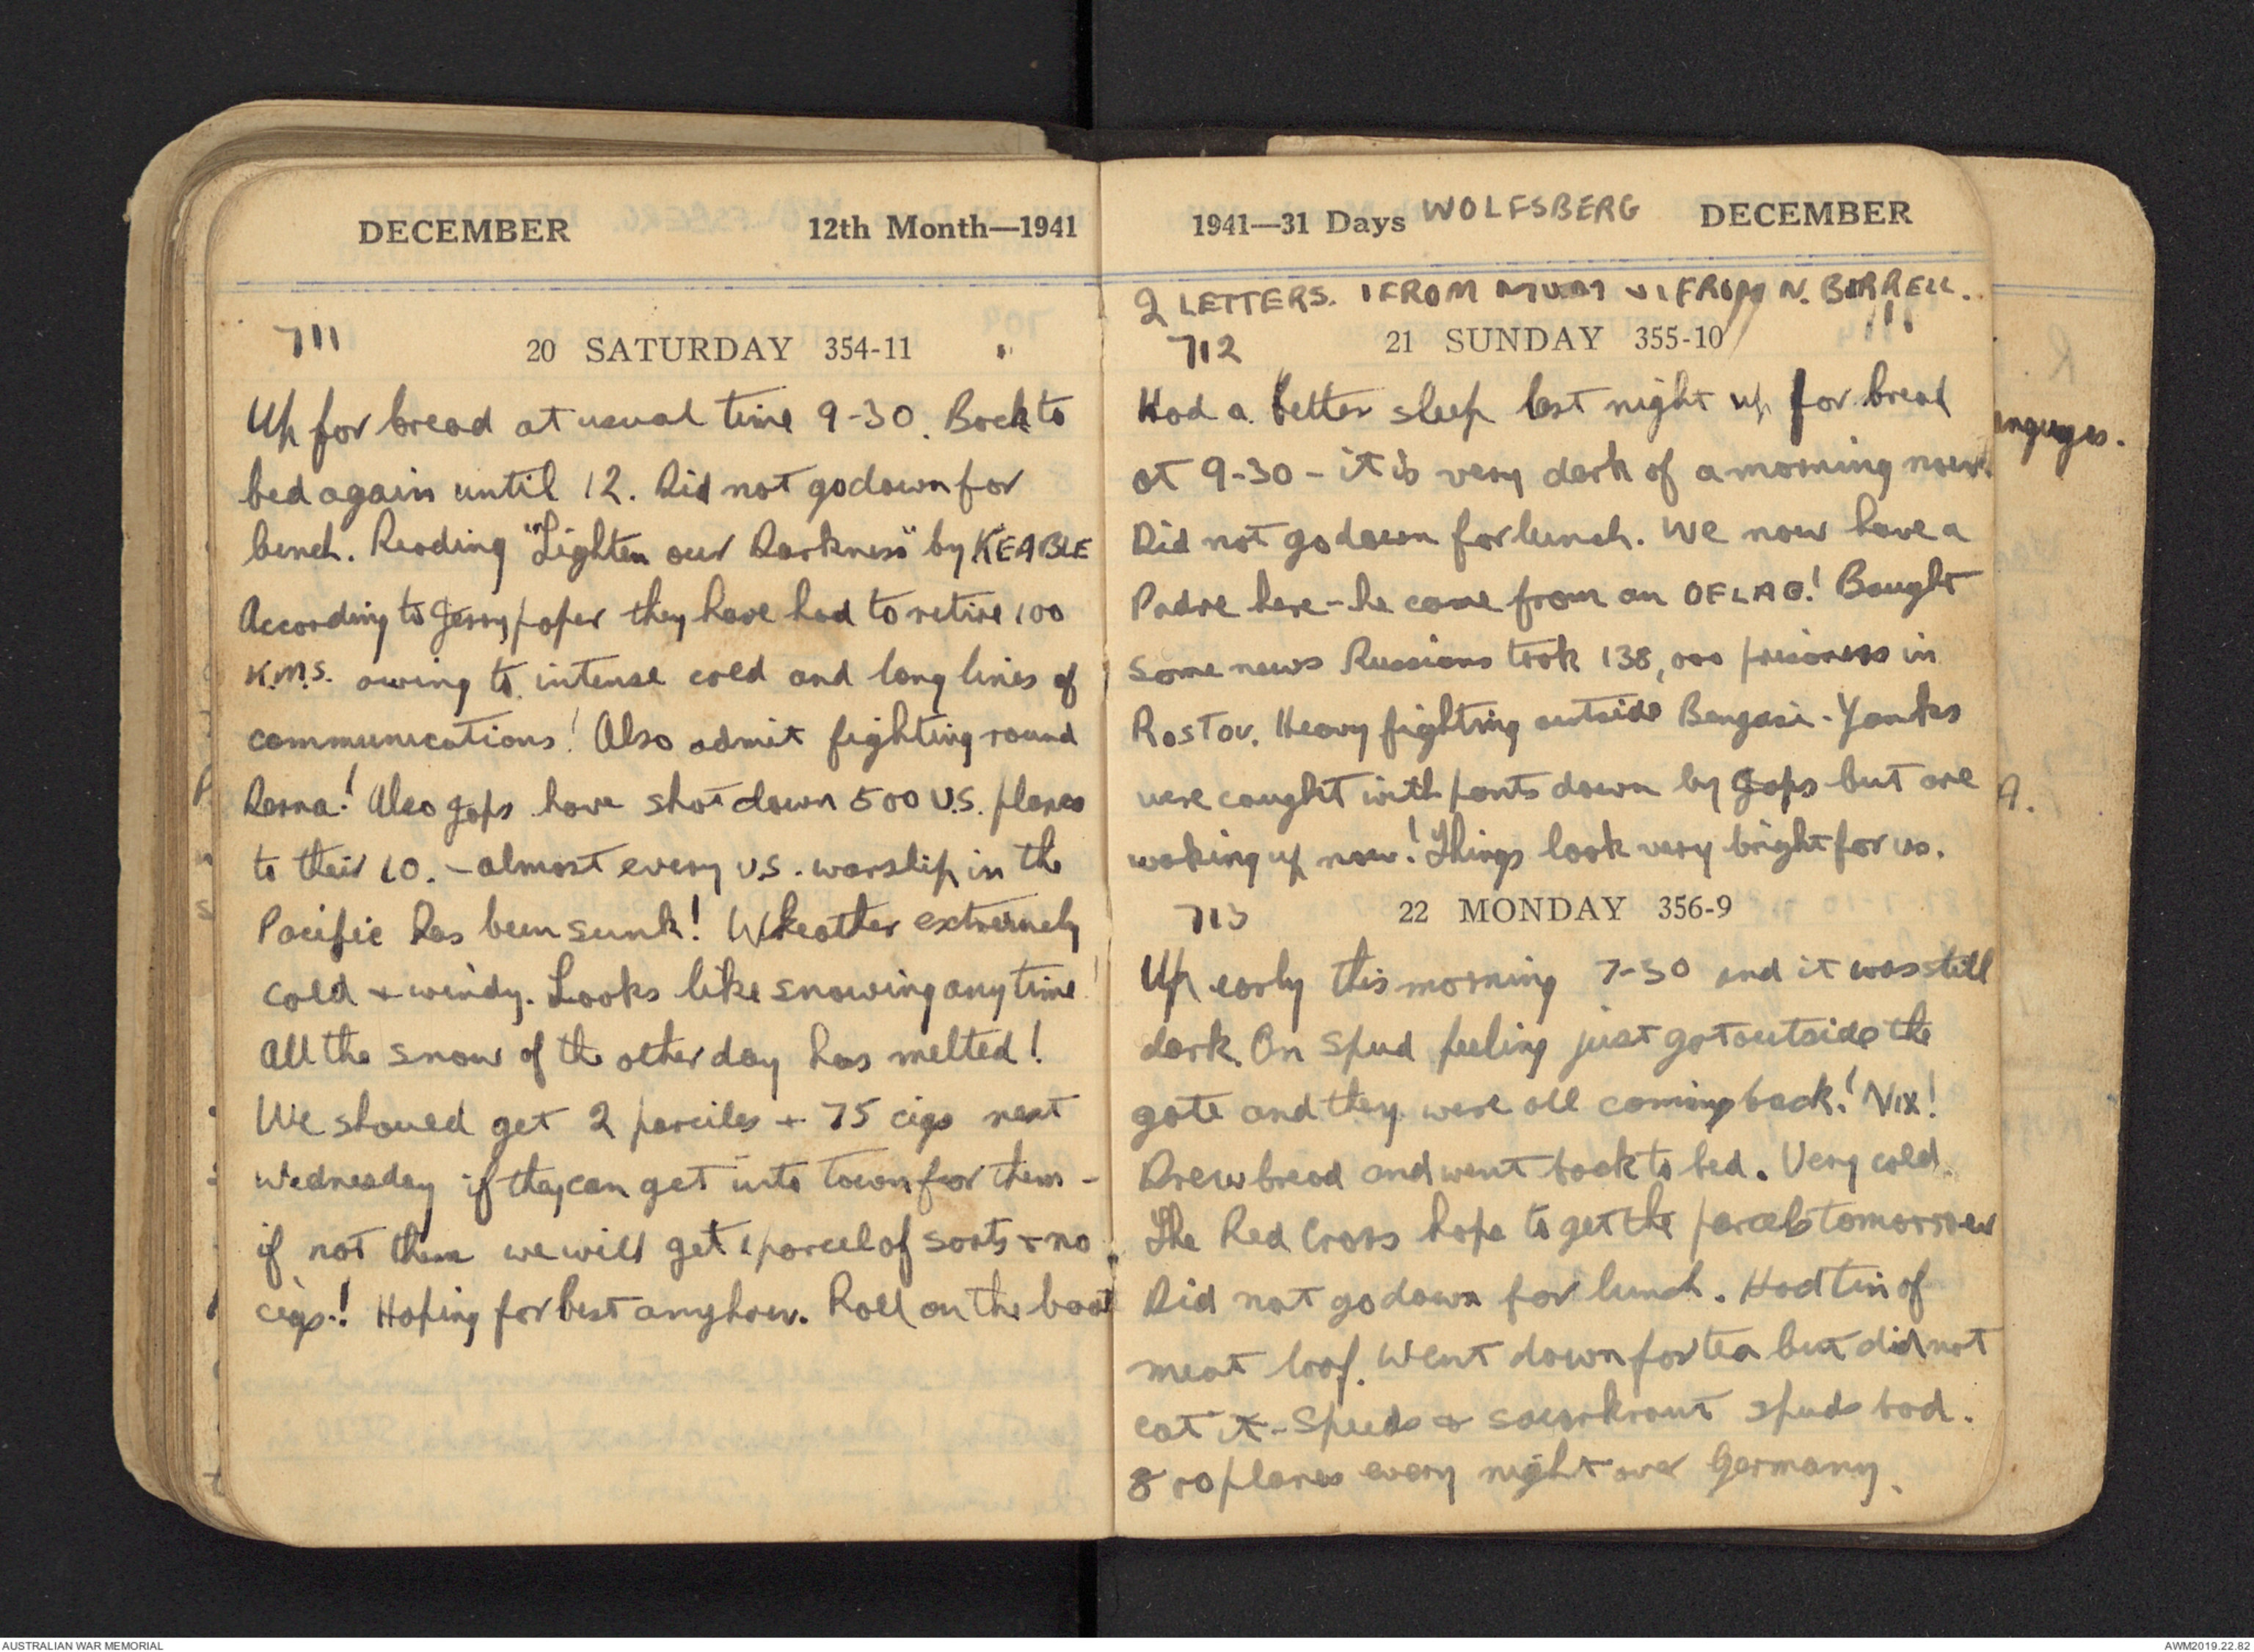 DECEMBER 12th Month—1941
711
20 SATURDAY 354-11
Up for bread at usual time 9-30. Back to
bed again until 12. Did not go down for
lunch. Reading "Lighten our Darkness" by KEABLE
According to Jerry paper they have had to retire 100
K.M.S. owing to intense cold and long lines of
communications! Also admit fighting round
Derna! Also Japs have shot down 500 U.S. planes
to their 10. - almost every U.S. warship in the
Pacific has been sunk! Wheather extremely
cold + windy. Looks like snowing any time!
All the snow of the other day has melted!
We should get 2 parciles + 75 cigs next
Wednesday if they can get into town for them -
if not then we will get 1 parcel of sorts + no
cigs! Hoping for best anyhow. Roll on the boat
1941—31 Days WOLFSBERG DECEMBER
2 LETTERS. 1 FROM MUM 1 FROM N. BIRRELL.
712
21 SUNDAY 355-10
Had a better sleep last night up for bread
at 9-30 - it is very dark of a morning now.
Did not go down for lunch. We now have a
Padre here - he came from an OFLAG! Bought
some news Russians took 138,000 prisoners in
Rostov. Heavy fighting outside Bengasi - Yanks
were caught with pants down by Japs but are
waking up now! Things look very bright for us.
713
22 MONDAY 356-9
Up early this morning 7-30 and it was still
dark. On spud peeling just got outside the
gate and they were all coming back! Nix!
Drew bread and went back to bed. Very cold.
The Red Cross hope to get the parcels tomorrow
Did not go down for lunch. Had tin of
meat loaf. Went down for tea but did not
eat it - Spuds & sourkraut spuds bad.
planes every night over Germany.
anguages.
AUSTRALIAN WAR MEMORIAL
AWM2019.22.82